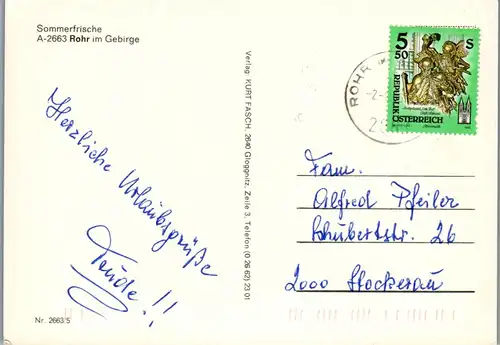 Sommerfrische
A-2663 Rohr im Gebirge
Verlag: KURT FASCH, 2640 Gloggnitz, Zeile 3, Telefon (0 26 62) 23 01
ROHR
5 50 S
REPUBLIK
ÖSTERREICH
Herzliche
Urlaubsgrüße
Trude!!
Fam.
Alfred Pfeiler
Schubertstr. 26
2000 Stockerau
Nr. 2663/5